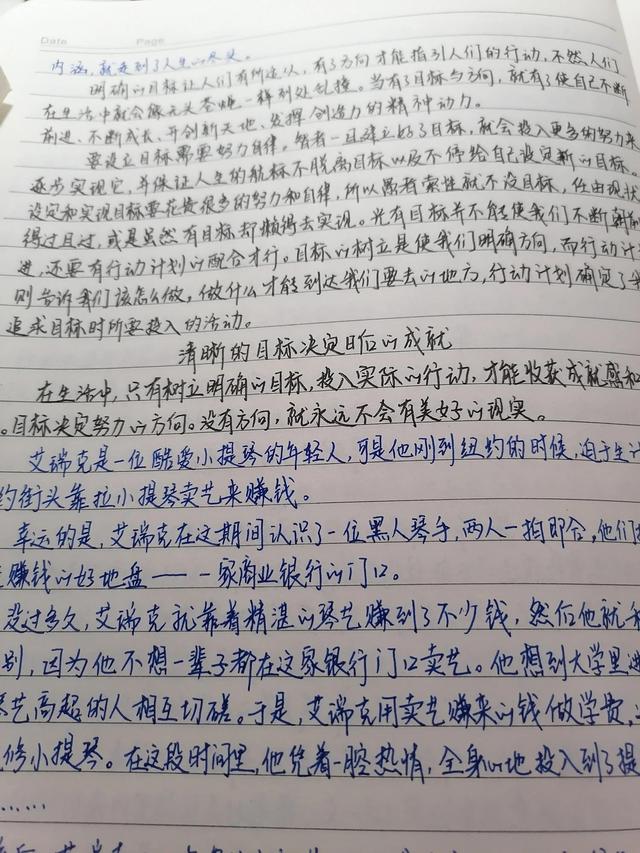 Date Page
内涵，就走到了人生的尽头。
明确的目标让人们有所适从，有了方向才能指引人们的行动，不然人们
在生活中就会像无头苍蝇一样到处乱撞。当有了目标与方向，就有了使自己不断
前进、不断成长、开创新天地、发挥创造力的精神动力。
要设立目标需要努力自律。智者一旦建立好了目标，就会投入更多的努力来
逐步实现它，并保证人生的航标不脱离目标以及不停给自己设定新的目标。
设定和实现目标要花费很多的努力和自律，所以愚者索性就不设目标，任由现状
得过且过，或是虽然有目标却懒得去实现。光有目标并不能使我们不断朝前
进，还要有行动计划的配合才行。目标的树立是使我们明确方向，而行动计
则告诉我们该怎么做，做什么才能到达我们要去的地方，行动计划确定了我
追求目标时所要投入的活动。
清晰的目标决定日后的成就
在生活中，只有树立明确的目标，投入实际的行动，才能收获成就感和
。目标决定努力的方向。没有方向，就永远不会有美好的现实。
艾瑞克是一位酷爱小提琴的年轻人，可是他刚到纽约的时候，迫于生计
约街头靠拉小提琴卖艺来赚钱。
幸运的是，艾瑞克在这期间认识了一位黑人琴手，两人一拍即合，他们
赚钱的好地盘——一家商业银行的门口。
没过多久，艾瑞克就靠着精湛的琴艺赚到了不少钱，然后他就和
别，因为他不想一辈子都在这家银行门口卖艺。他想到大学里进
艺高超的人相互切磋。于是，艾瑞克用卖艺赚来的钱做学费，
修小提琴。在这段时间里，他凭着一腔热情，全身心地投入到了提
……